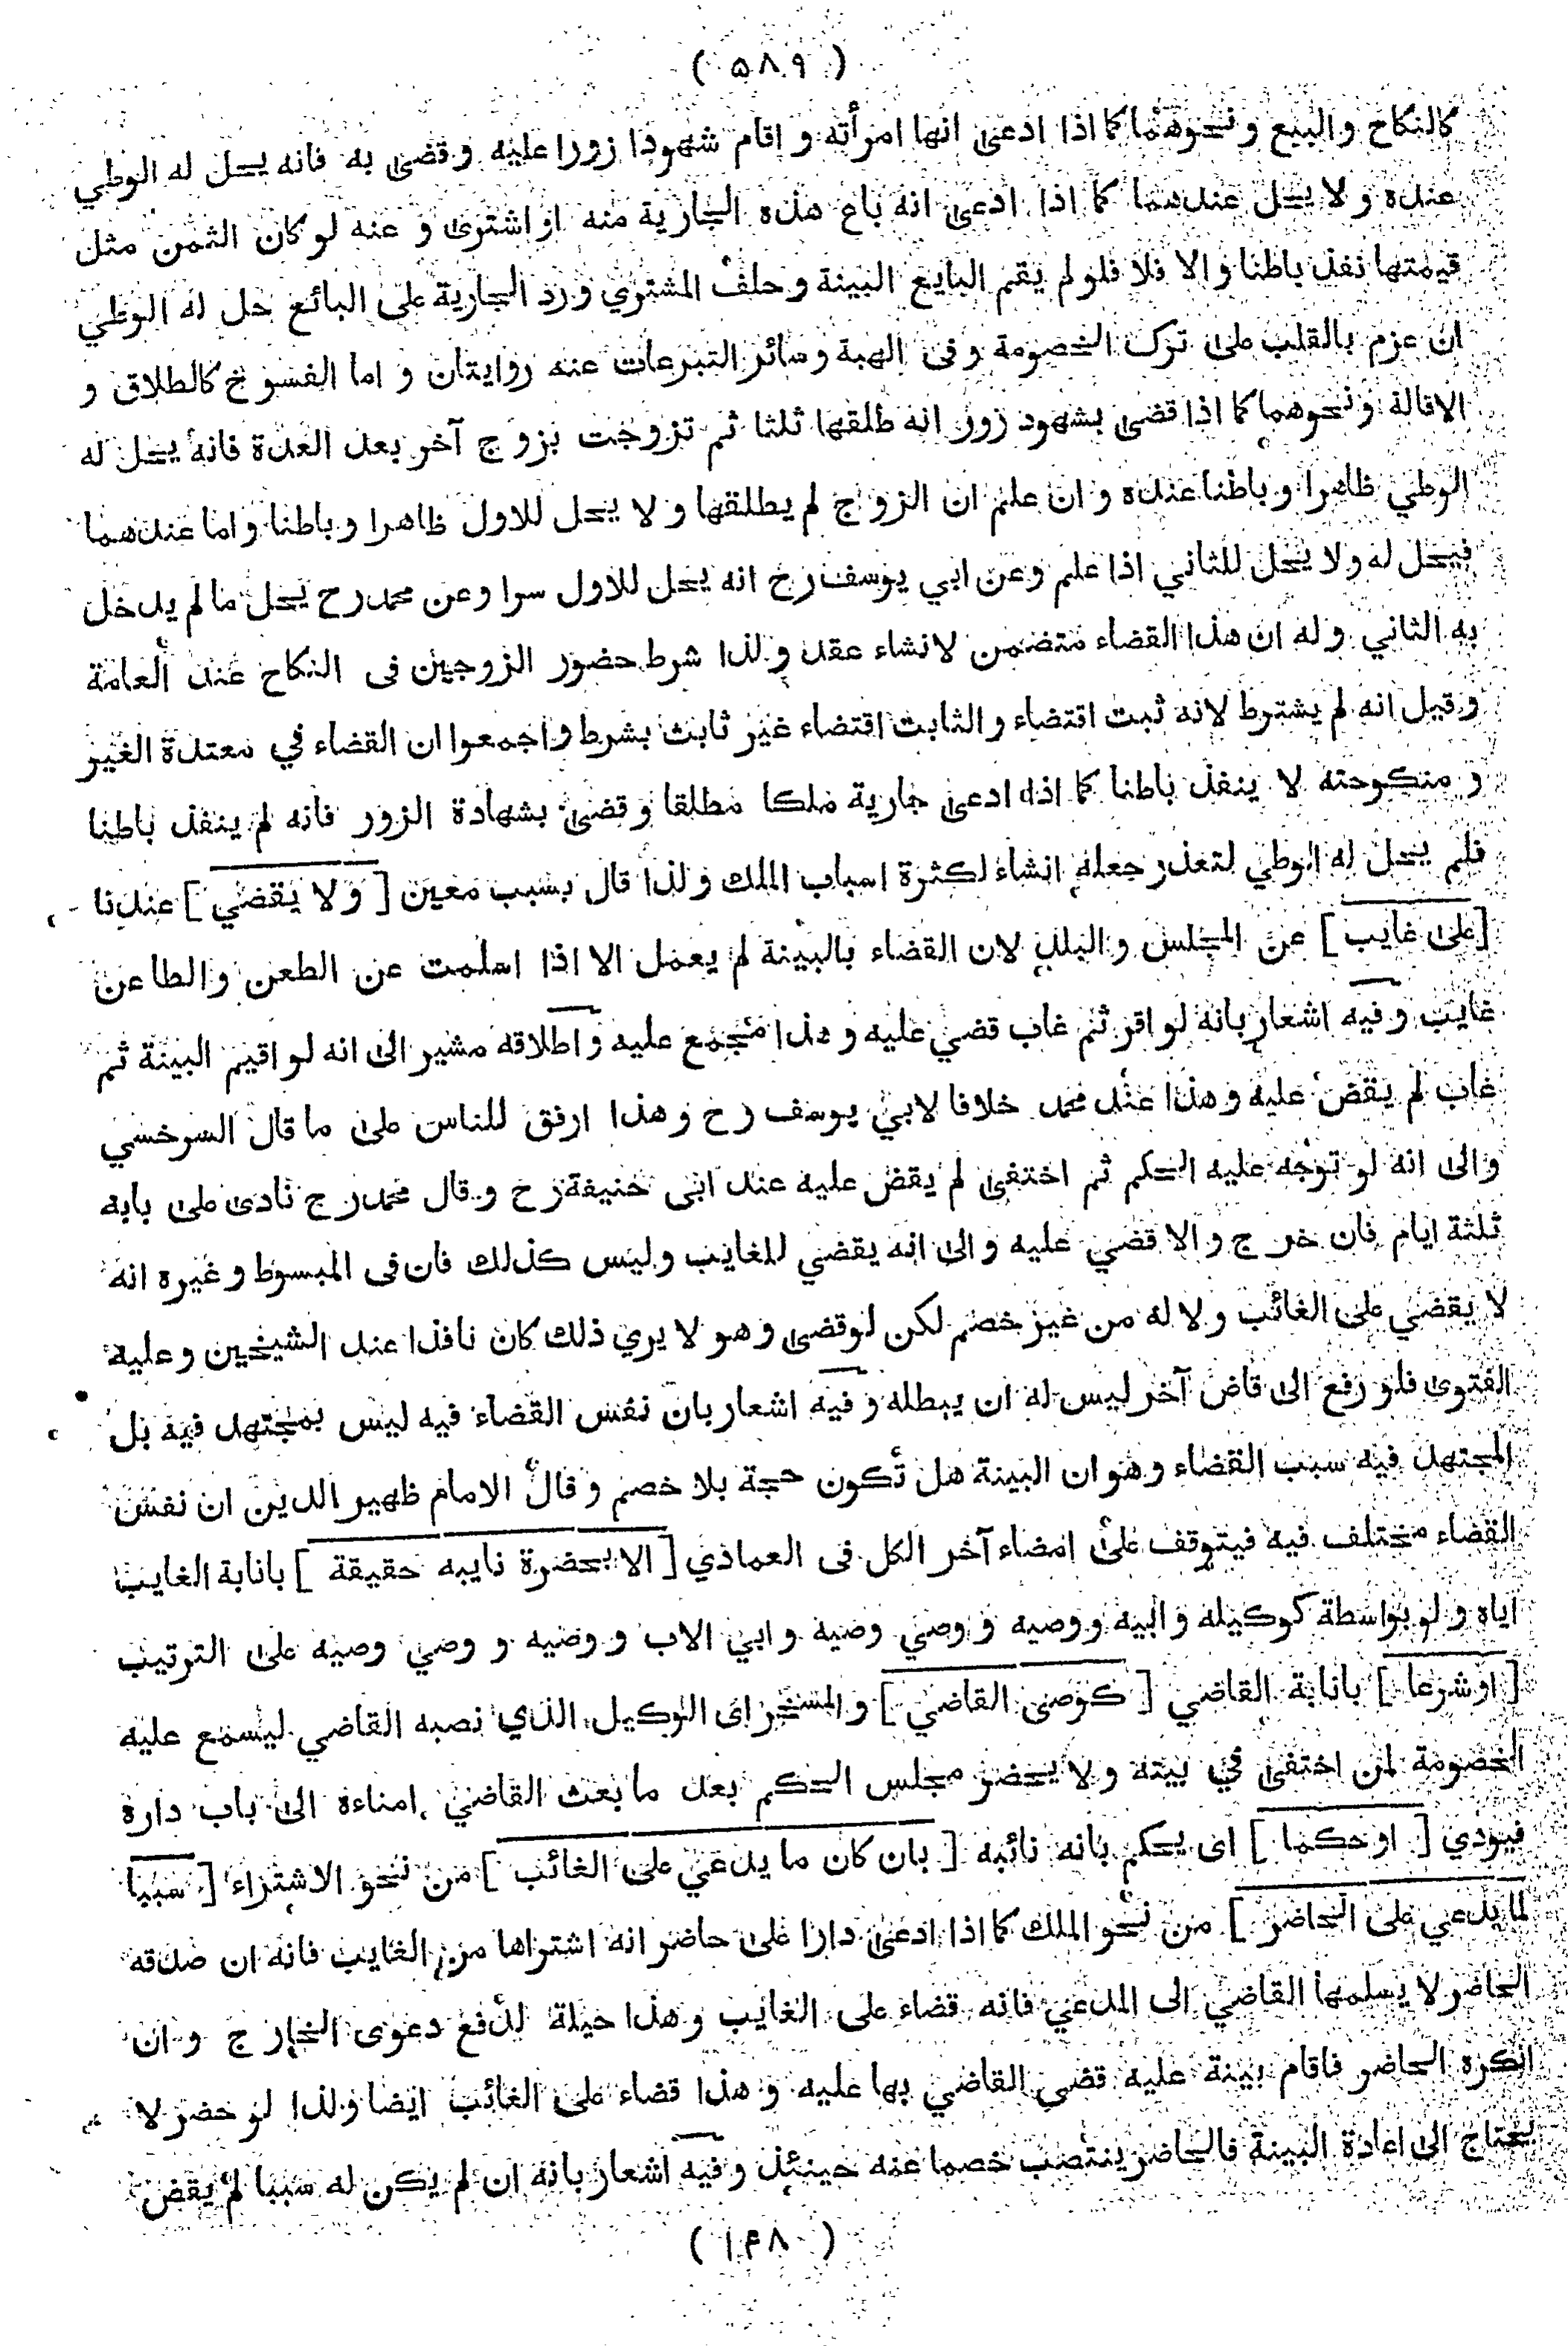 ( ۵۸۹ )
كالنكاح و البيع و نحوهما كما اذا ادعى انها امرأته و اقام شهودا زورا عليه و قضى به فانه يحل له الوطي
عنده و لا يحل عندهما كما اذا ادعى انه باع هذه الجارية منه او اشترى و عنه لو كان الثمن مثل
قيمتها نفذ باطنا و الا فلا فلو لم يقم البايع البينة و حلف المشتري و رد الجارية على البائع حل له الوطي
ان عزم بالقلب على ترك الخصومة و فى الهبة و سائر التبرعات عنه روايتان و اما الفسوخ كالطلاق و
الاقالة و نحوهما كما اذا قضى بشهود زور انه طلقها ثلثا ثم تزوجت بزوج آخر بعد العدة فانه يحل له
الوطي ظاهرا و باطنا عنده و ان علم ان الزوج لم يطلقها و لا يحل للاول ظاهرا و باطنا و اما عندهما
فيحل له و لا يحل للثاني اذا علم و عن ابي يوسف رح انه يحل للاول سرا و عن محمد رح يحل ما لم يدخل
به الثاني و له ان هذا القضاء متضمن لانشاء عقد و لذا شرط حضور الزوجين فى النكاح عند العامة
و قيل انه لم يشترط لانه ثبت اقتضاء و الثابت اقتضاء غير ثابت بشرط و اجمعوا ان القضاء في معتدة الغير
و منكوحته لا ينفذ باطنا كما اذا ادعى جارية ملكا مطلقا و قضى بشهادة الزور فانه لم ينفذ باطنا
فلم يحل له الوطي لتعذر جعله انشاء لكثرة اسباب الملك و لذا قال بسبب معين [ و لا يقضي ] عندنا
[ على غايب ] عن المجلس و البلد لان القضاء بالبينة لم يعمل الا اذا اسلمت عن الطعن و الطاعن
غايب و فيه اشعار بانه لو اقر ثم غاب قضي عليه و هذا مجمع عليه و اطلاقه مشير الى انه لو اقيم البينة ثم
غاب لم يقض عليه و هذا عند محمد خلافا لابي يوسف رح و هذا ارفق للناس على ما قال السرخسي
و الى انه لو توجه عليه الحكم ثم اختفى لم يقض عليه عند ابى حنيفة رح و قال محمد رح نادى على بابه
ثلثة ايام فان خرج و الا قضي عليه و الى انه يقضي للغايب و ليس كذلك فان فى المبسوط و غيره انه
لا يقضي على الغائب و لا له من غير خصم لكن لو قضى و هو لا يري ذلك كان نافذا عند الشيخين و عليه
الفتوى فلو رفع الى قاض آخر ليس له ان يبطله و فيه اشعار بان نفس القضاء فيه ليس بمجتهد فيه بل
المجتهد فيه سبب القضاء و هو ان البينة هل تكون حجة بلا خصم و قال الامام ظهير الدين ان نفس
القضاء مختلف فيه فيتوقف على امضاء آخر الكل فى العمادي [ الا بحضرة نايبه حقيقة ] بانابة الغايب
اياه و لو بواسطة كوكيله و ابيه و وصيه و وصي وصيه و ابي الاب و وصيه و وصي وصيه على الترتيب
[ او شرعا ] بانابة القاضي [ كوصى القاضي ] و المسخر اى الوكيل الذي نصبه القاضي ليسمع عليه
الخصومة لمن اختفى في بيته و لا يحضر مجلس الحكم بعد ما بعث القاضي امناءه الى باب داره
فيودي [ او حكما ] اى يحكم بانه نائبه [ بان كان ما يدعي على الغائب ] من نحو الاشتراء [ سببا
لما يدعي على الحاضر ] من نحو الملك كما اذا ادعى دارا على حاضر انه اشتراها من الغايب فانه ان صدقه
الحاضر لا يسلمها القاضي الى المدعي فانه قضاء على الغايب و هذا حيلة لدفع دعوى الخارج و ان
انكره الحاضر فاقام بينة عليه قضى القاضي بها عليه و هذا قضاء على الغائب ايضا و لذا لو حضر لا
يحتاج الى اعادة البينة فالحاضر ينتصب خصما عنه حينئذ و فيه اشعار بانه ان لم يكن له سببا لم يقض
( ۱۴۸ )